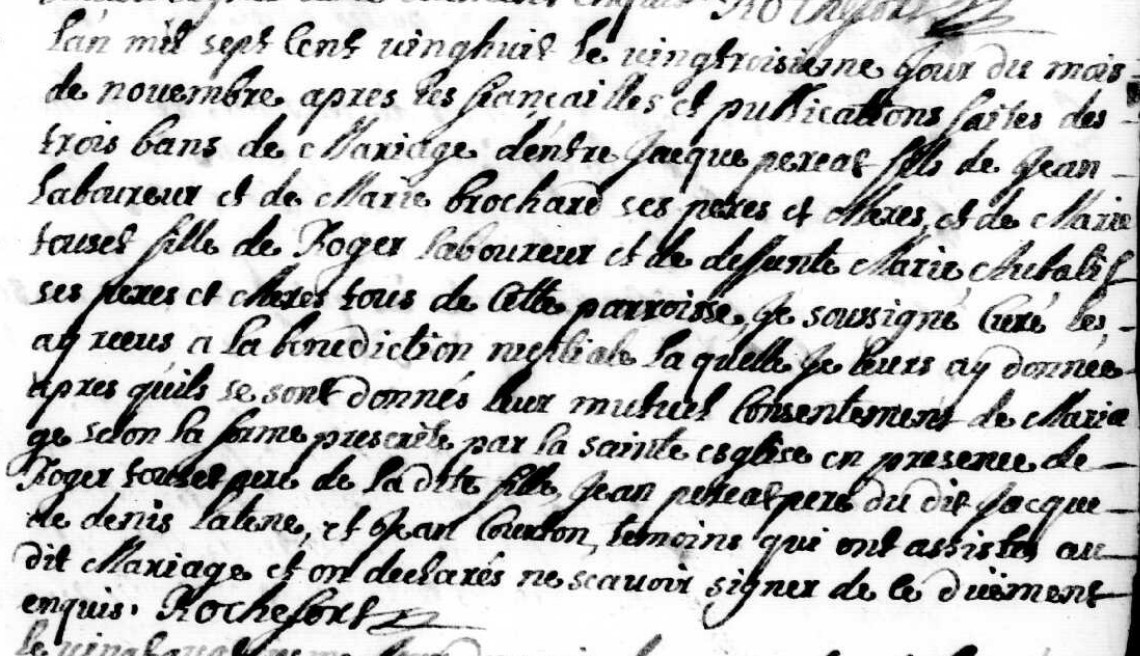 enquis Rochefort
Lan mil sept cent vinghuit le vingtroisieme jour du mois
de novembre apres les fiançailles et publications faites des
trois bans de Mariage dentre Jacque pereat fils de Jean
laboureur et de Marie brochard ses peres et Meres, et de Marie
touset fille de Roger laboureur et de deffunte Marie
ses peres et Meres tous de cette parroisse, Je soussigné Curé les
ay receus a la benediction nuptiale la quelle Je leurs ay donnée
apres quils se sont donnés leur mutuel Consentement de Maria
ge selon la forme prescrite par la sainte esglise en presence de
Roger touset pere de la dite fille Jean pereat pere du dit Jacque
de denis latene, et Jean Courton, temoins qui ont assistes au
dit Mariage et on declarés ne scavoir signer de ce duement
enquis. Rochefort
le